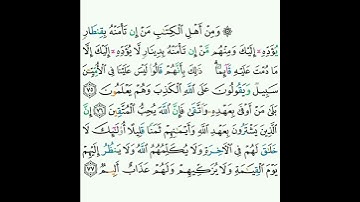 ۞ وَمِنْ أَهْلِ ٱلْكِتَٰبِ مَنْ إِن تَأْمَنْهُ بِقِنطَارٍ
يُؤَدِّهِۦٓ إِلَيْكَ وَمِنْهُم مَّنْ إِن تَأْمَنْهُ بِدِينَارٍ لَّا يُؤَدِّهِۦٓ إِلَيْكَ إِلَّا
مَا دُمْتَ عَلَيْهِ قَآئِمًا ۗ ذَٰلِكَ بِأَنَّهُمْ قَالُوا۟ لَيْسَ عَلَيْنَا فِى ٱلْأُمِّيِّـۧنَ
سَبِيلٌ وَيَقُولُونَ عَلَى ٱللَّهِ ٱلْكَذِبَ وَهُمْ يَعْلَمُونَ ٧٥
بَلَىٰ مَنْ أَوْفَىٰ بِعَهْدِهِۦ وَٱتَّقَىٰ فَإِنَّ ٱللَّهَ يُحِبُّ ٱلْمُتَّقِينَ ٧٦ إِنَّ
ٱلَّذِينَ يَشْتَرُونَ بِعَهْدِ ٱللَّهِ وَأَيْمَٰنِهِمْ ثَمَنًا قَلِيلًا أُو۟لَٰٓئِكَ لَا
خَلَٰقَ لَهُمْ فِى ٱلْـَٔاخِرَةِ وَلَا يُكَلِّمُهُمُ ٱللَّهُ وَلَا يَنظُرُ إِلَيْهِمْ
يَوْمَ ٱلْقِيَٰمَةِ وَلَا يُزَكِّيهِمْ وَلَهُمْ عَذَابٌ أَلِيمٌ ٧٧